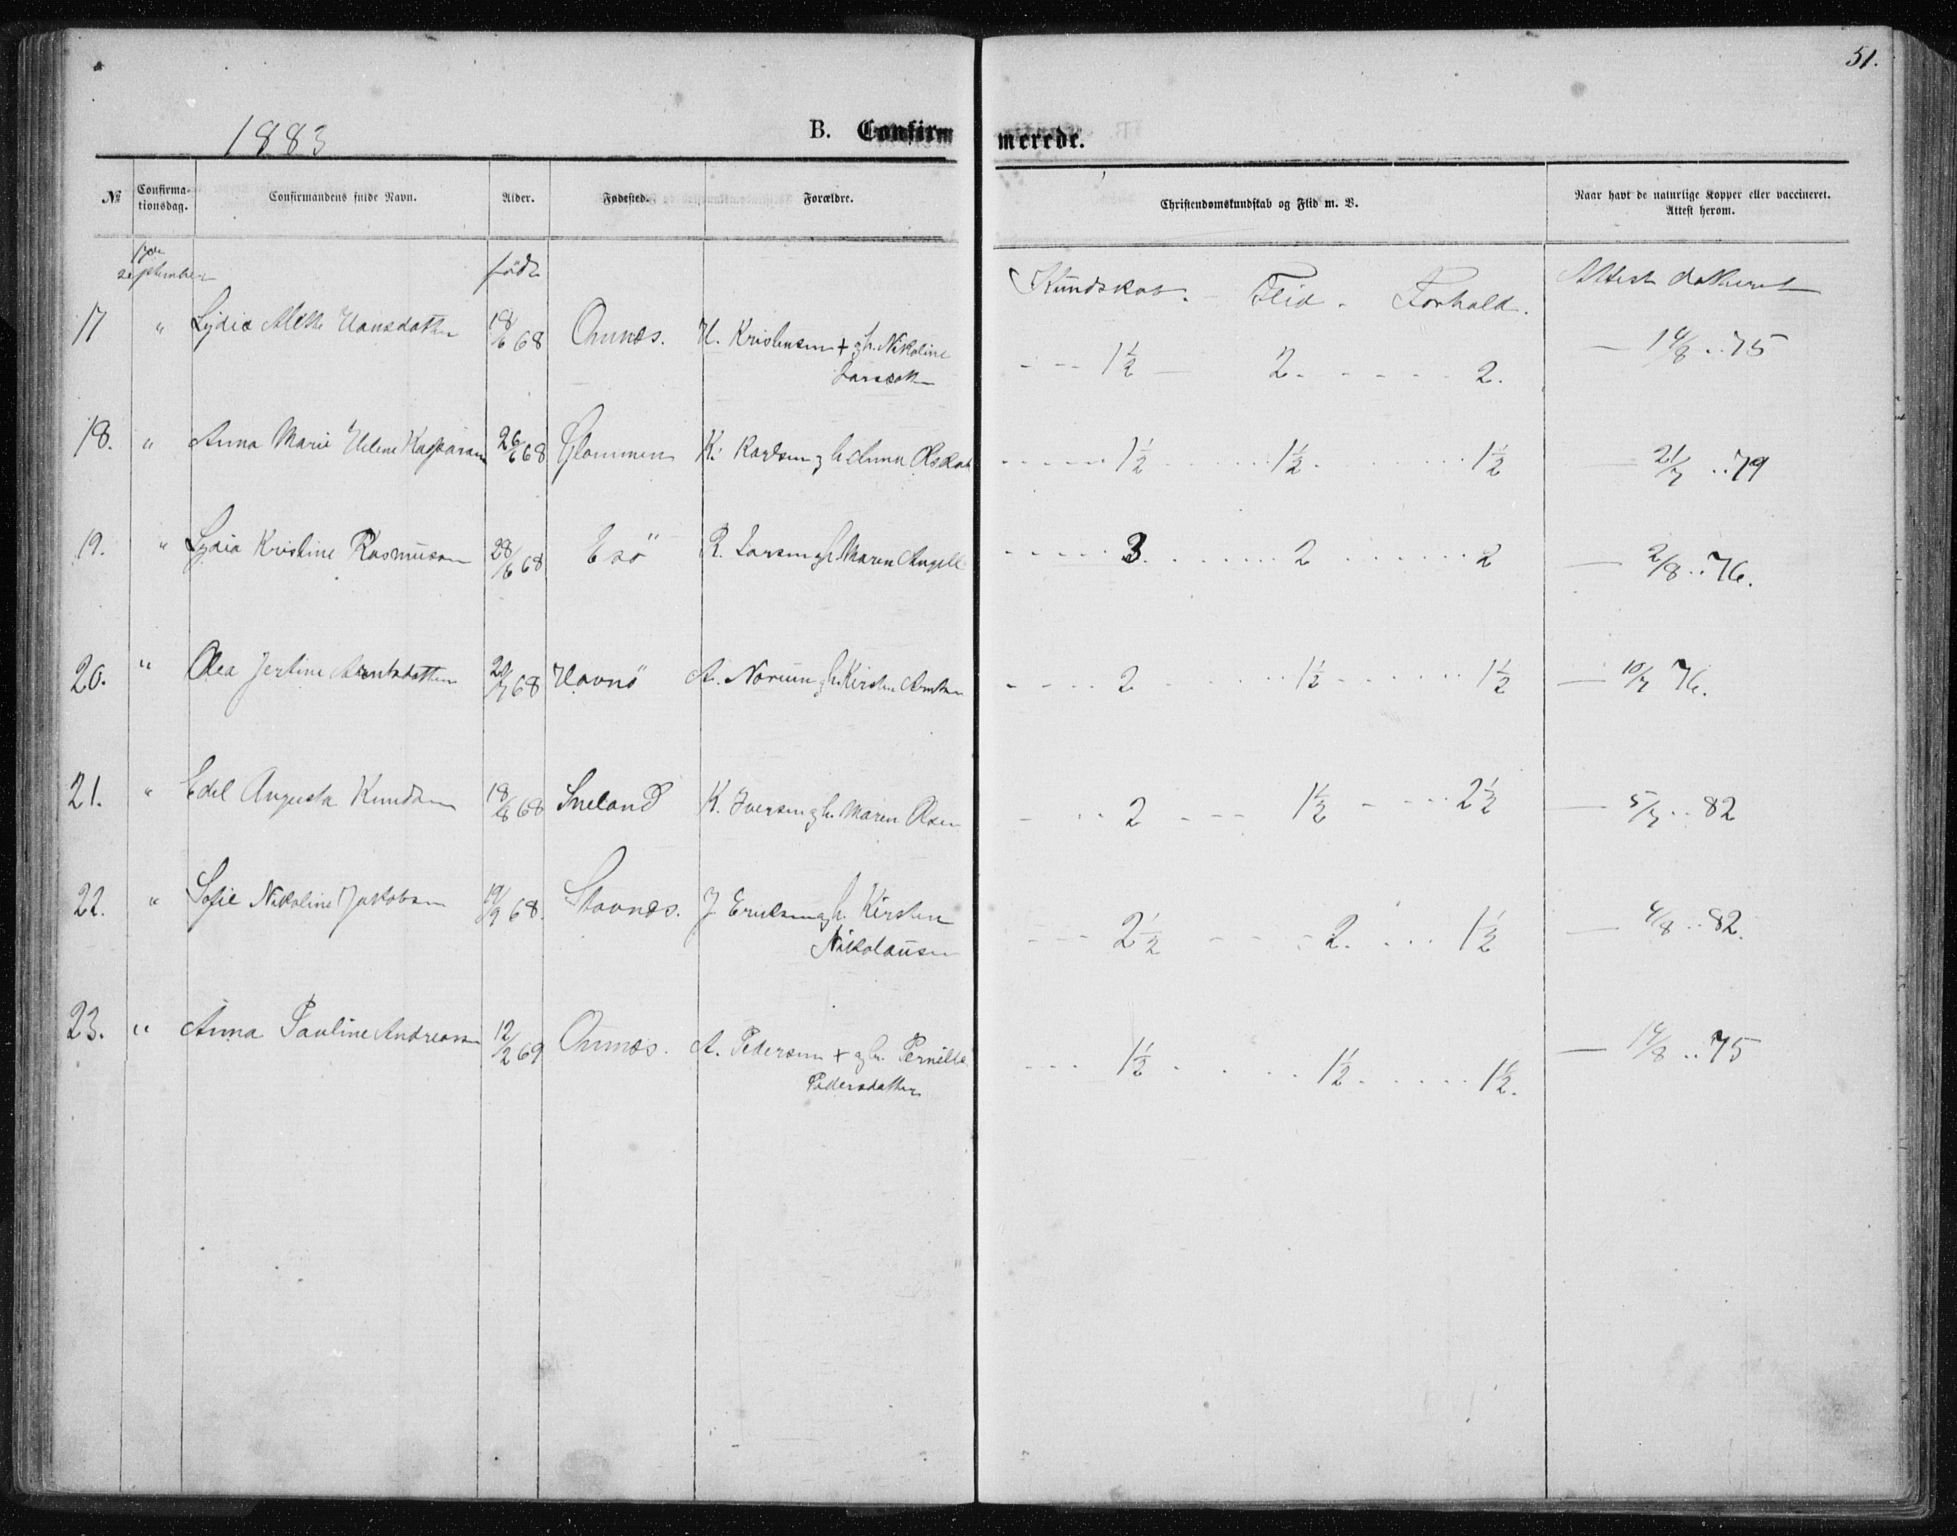 51.
1883
B. Confirmerede.
№ Confirmationsdag. Confirmandens fulde Navn. Alder. Fødested. Forældre. Christendomskundskab og Flid m. V. Naar havt de naturlige Kopper eller vaccineret. Attest herom.
september født Kundskab. Flid. Forhold. Attest datteret
17 " Lydia Mette Hansdatter 18/6 68 Onnæs. H. Kristensen + g h. Nikoline 1½ 2 2. 14/8 .. 75
18. " Anna Marie Helene Kasparsen 26/6 68 Glommen K. Karlsen g h Anna 1½ 1½ 1½ 21/7 .. 79
19. " Lydia Kristine Rasmusen 28/6 68 Esö R. Larsen g h. Maren Angell 3. 2 2 2/8 .. 76.
20. " Olea Jertine Arntsdatter 68 Havnö A. Norum g h. Kirsten Arntsen 2 1½ 1½ 10/7 76.
21. " Edel Augusta Knudsen 18/8 68 Sneland K. Iversen g h. Maren Olsen 2 1½ 2½ 5/7 .. 82
22. " Sofie Nikoline Jakobsen 19/9 68. Stavnæs. J Eriksen g h. Kirsten 2½ 2. 1½ 4/8 .. 82.
Nikolausen
23. " Anna Pauline Andreasen 12/2 69 Onnæs. A. Pedersen + g h. Pernille 1½ 1½ 1½. 14/8 .. 75
Pedersdatter